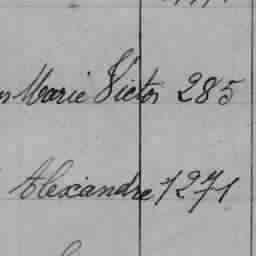 Marie Victor 285
Alexandre 1271